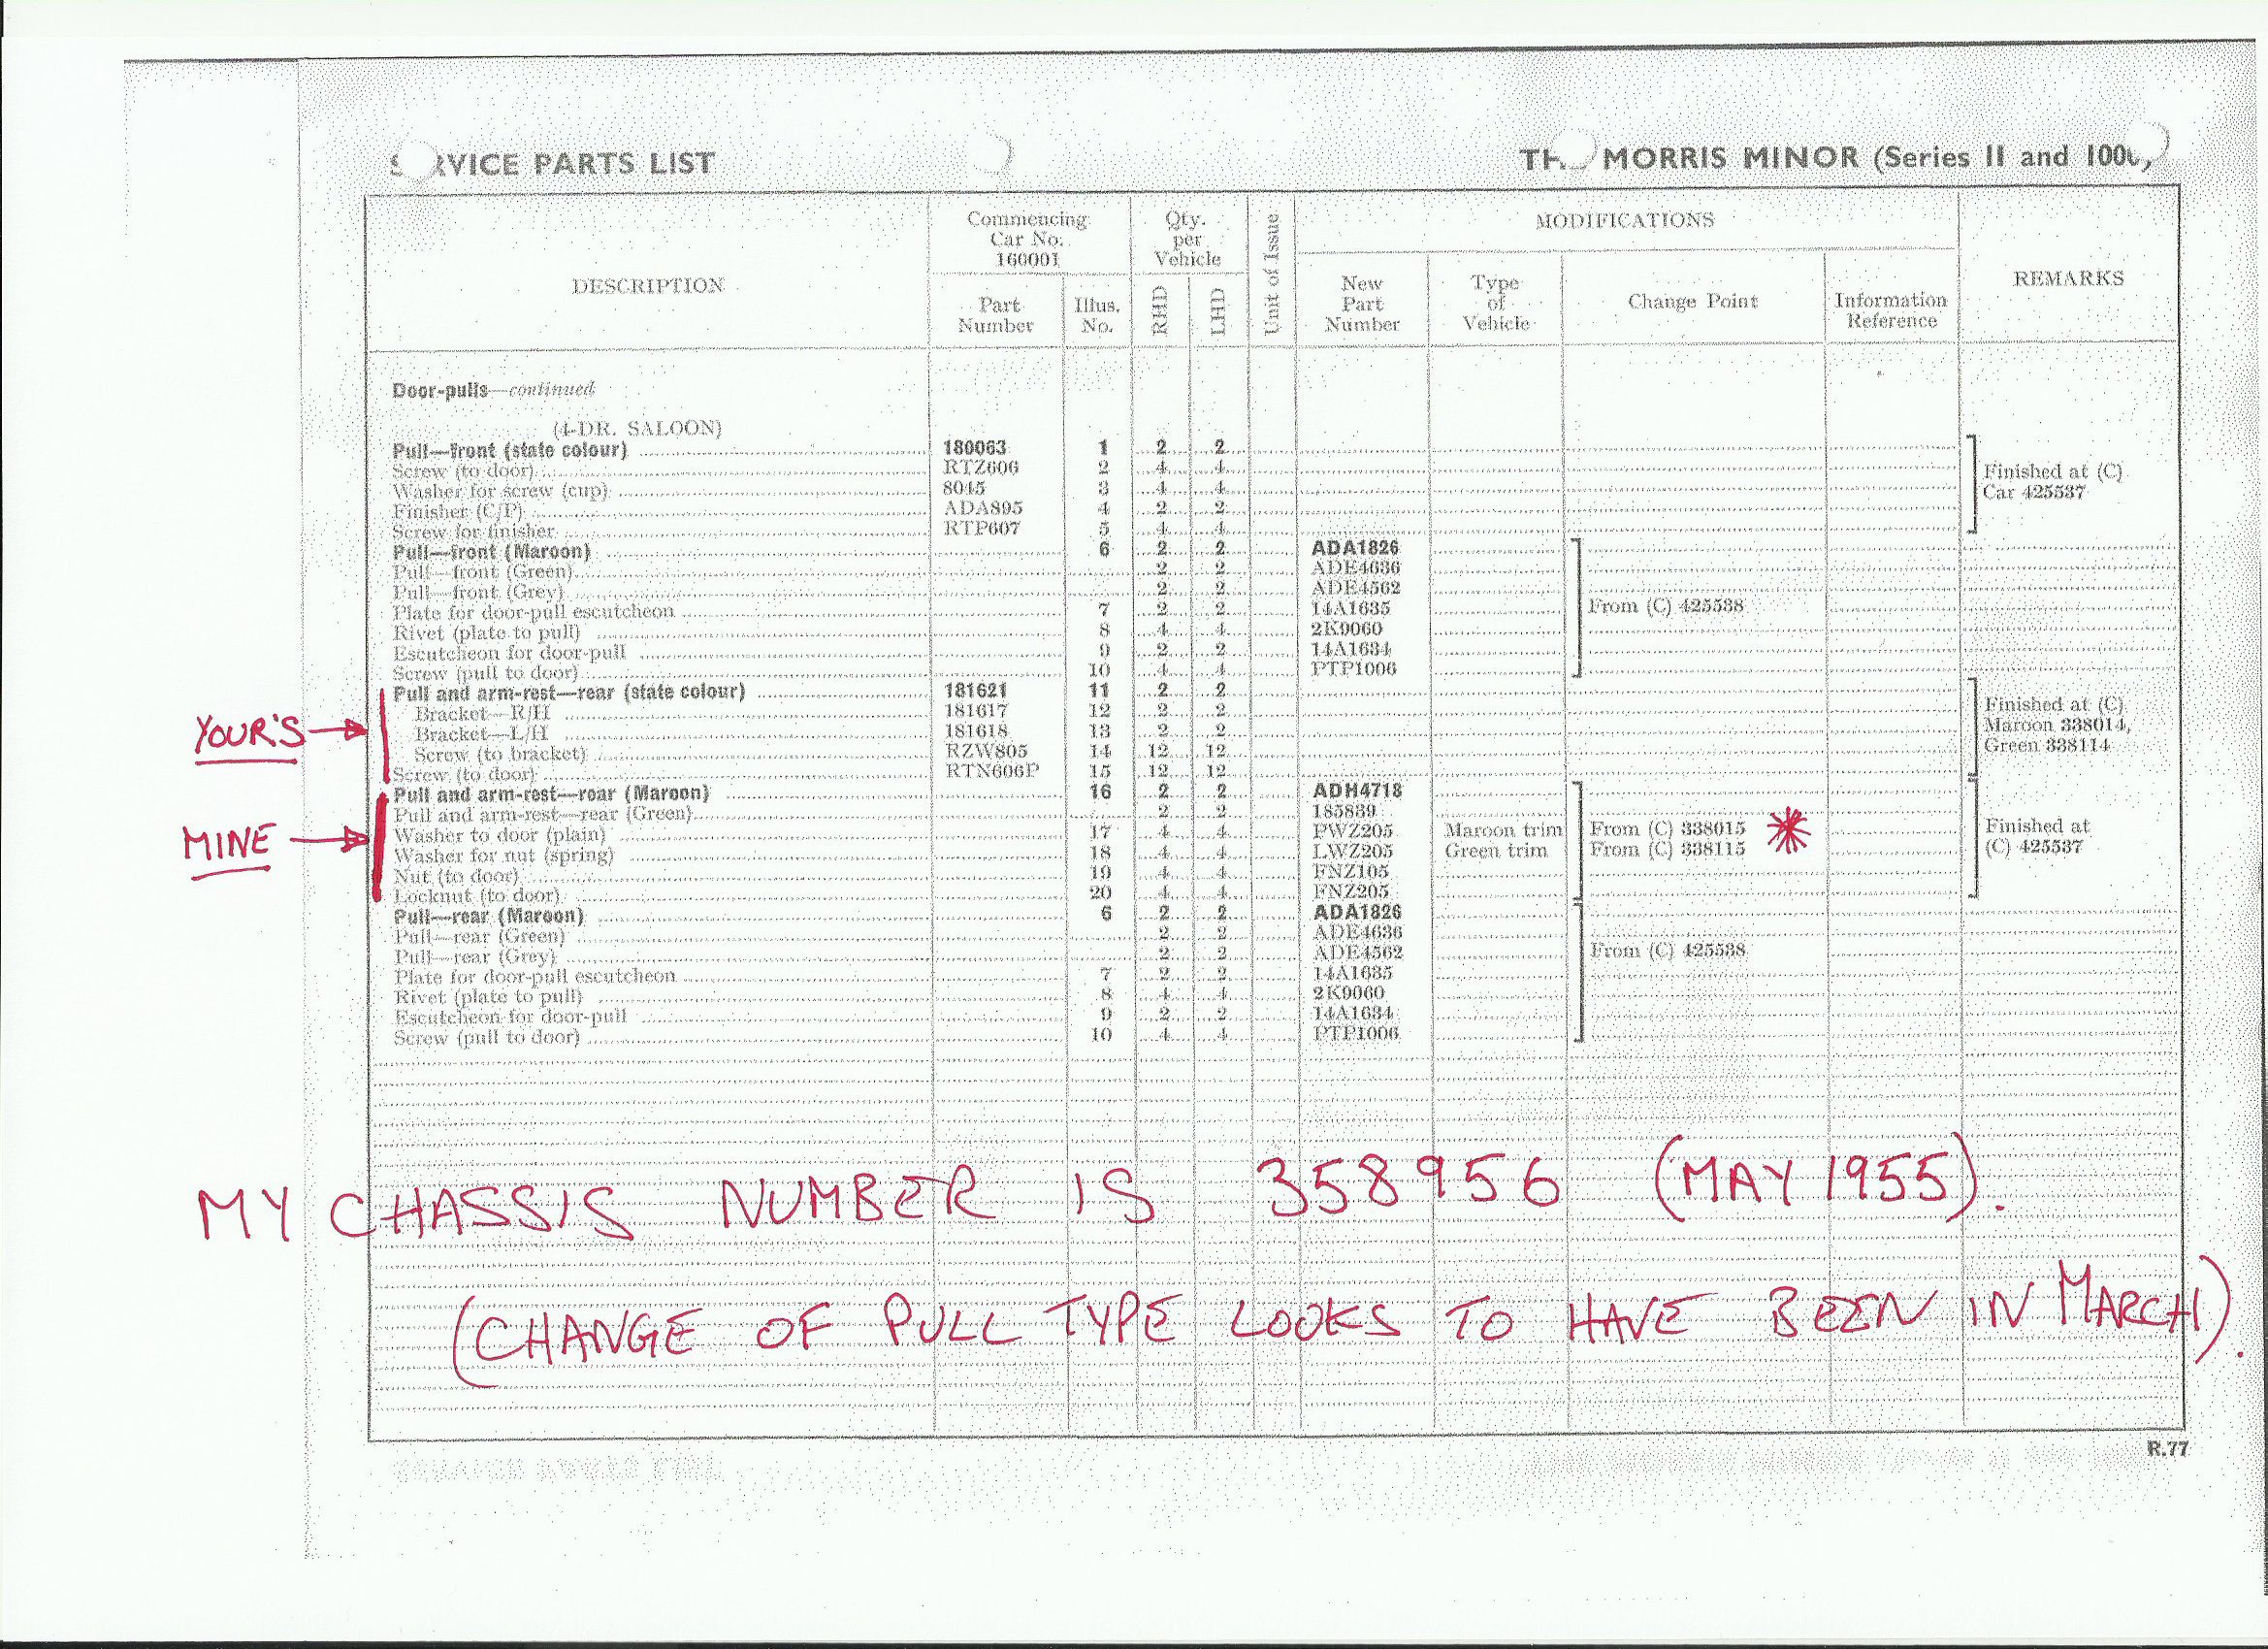 SERVICE PARTS LIST THE MORRIS MINOR (Series II and 1000)
DESCRIPTION
Commencing
Car No.
160001
Part
Number
Illus.
No.
Qty.
per
Vehicle
RHD
LHD
Unit of Issue
MODIFICATIONS
New
Part
Number
Type
of
Vehicle
Change Point
Information
Reference
REMARKS
Door-pulls—continued
(4-DR. SALOON)
Pull—front (state colour) 180063 1 2 2
Screw (to door) RTZ606 2 4 4
Washer for screw (cup) 8045 3 4 4
Finisher (C/P) ADA895 4 2 2
Screw for finisher RTP607 5 4 4
Finished at (C)
Car 425537
Pull—front (Maroon) 6 2 2 ADA1826
Pull—front (Green) 2 2 ADE4636
Pull—front (Grey) 2 2 ADE4562
Plate for door-pull escutcheon 7 2 2 14A1635 From (C) 425538
Rivet (plate to pull) 8 4 4 2K9060
Escutcheon for door-pull 9 2 2 14A1634
Screw (pull to door) 10 4 4 PTP1006
Pull and arm-rest—rear (state colour) 181621 11 2 2
Bracket—R/H 181617 12 2 2
Bracket—L/H 181618 13 2 2
Screw (to bracket) RZW805 14 12 12
Screw (to door) RTN606P 15 12 12
Finished at (C)
Maroon 338014,
Green 338114
YOUR'S
Pull and arm-rest—rear (Maroon) 16 2 2 ADH4718
Pull and arm-rest—rear (Green) 2 2 185839
Washer to door (plain) 17 4 4 PWZ205 Maroon trim From (C) 338015
Washer for nut (spring) 18 4 4 LWZ205 Green trim From (C) 338115
Nut (to door) 19 4 4 FNZ105
Locknut (to door) 20 4 4 FNZ205
Finished at
(C) 425537
MINE
Pull—rear (Maroon) 6 2 2 ADA1826
Pull—rear (Green) 2 2 ADE4636
Pull—rear (Grey) 2 2 ADE4562 From (C) 425538
Plate for door-pull escutcheon 7 2 2 14A1635
Rivet (plate to pull) 8 4 4 2K9060
Escutcheon for door-pull 9 2 2 14A1634
Screw (pull to door) 10 4 4 PTP1006
MY CHASSIS NUMBER IS 358956 (MAY 1955).
(CHANGE OF PULL TYPE LOOKS TO HAVE BEEN IN MARCH).
R.77